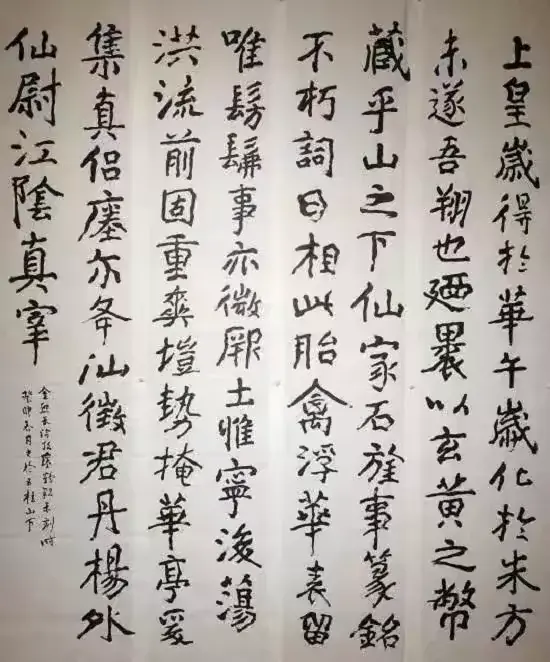 上皇歲得於華午歲化於朱方
未遂吾翔也廼裹以玄黃之幣
藏乎山之下仙家石旌事篆銘
不朽詞曰相此胎禽浮華表留
唯髣髴事亦微厥土惟寧後蕩
洪流前固重爽塏勢掩華亭爰
集真侶瘞尒夅汕徵君丹楊外
仙尉江陰真宰
癸卯春月山下